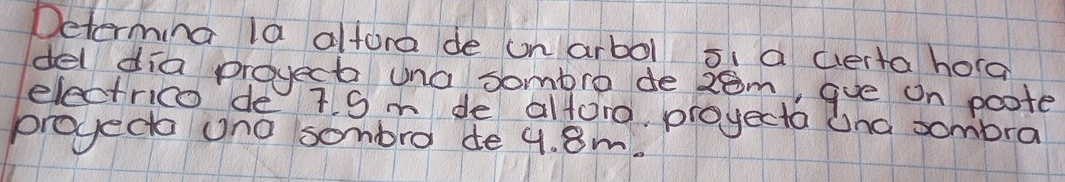 Determina la altura de un arbol si a cierta hora
del día proyecta una sombra de 28m, que un poste
electrico de 7.5 m de altura. proyecta una sombra
proyecta una sombra de 4.8m.